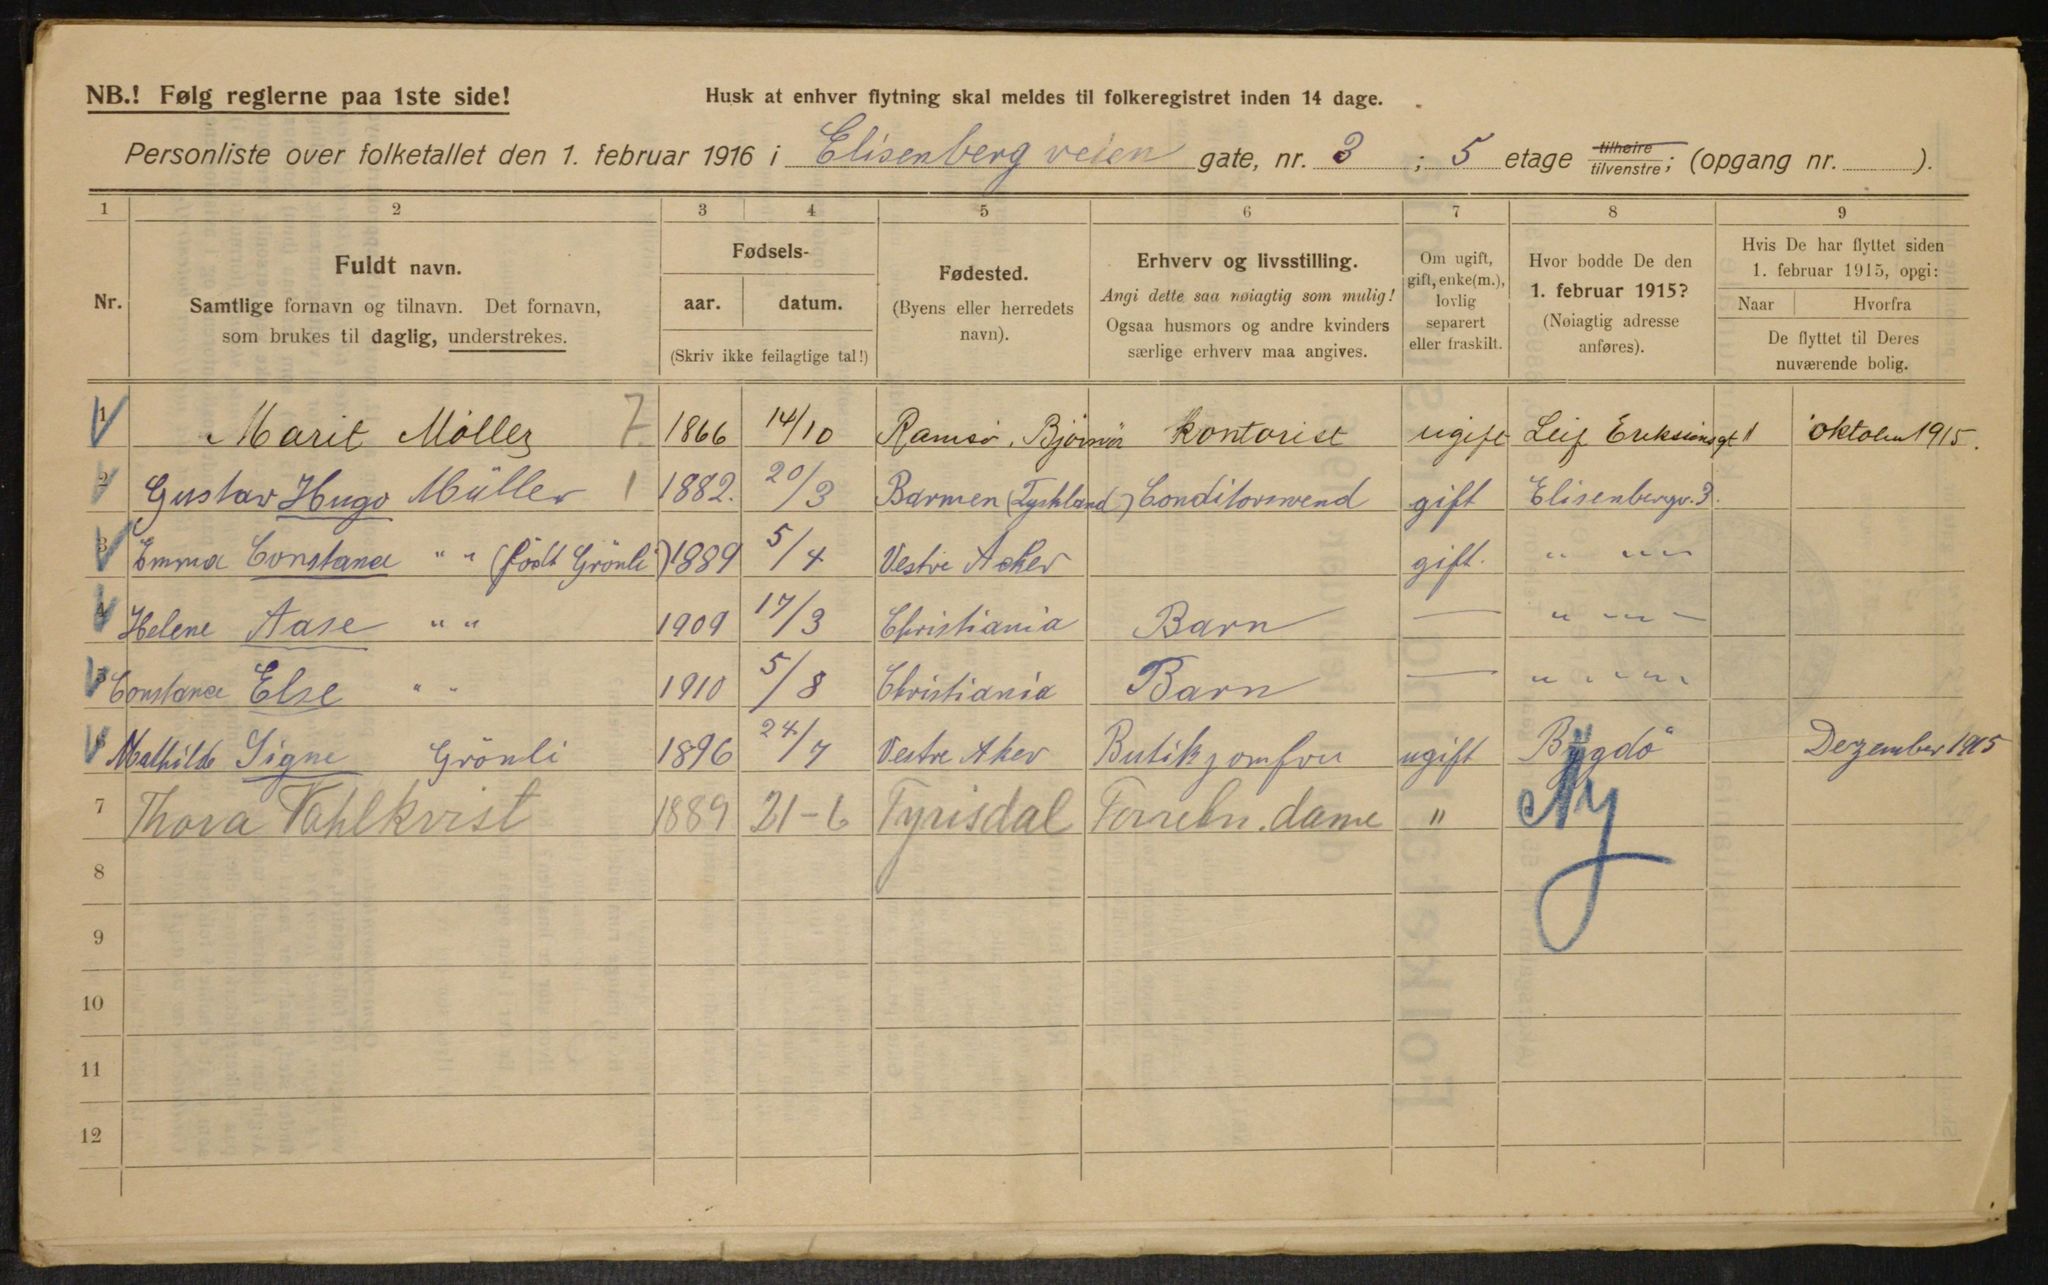 NB.! Følg reglerne paa 1ste side!
Husk at enhver flytning skal meldes til folkeregistret inden 14 dage.
Personliste over folketallet den 1. februar 1916 i Elisenberg veien gate, nr. 3 ; 5 etage tilhøire/tilvenstre; (opgang nr. ).
1 2 3 4 5 6 7 8 9
Nr.
Fuldt navn.
Samtlige fornavn og tilnavn. Det fornavn,
som brukes til daglig, understrekes.
Fødsels-
aar. datum.
(Skriv ikke feilagtige tal!)
Fødested.
(Byens eller herredets
navn).
Erhverv og livsstilling.
Angi dette saa nøiagtig som mulig!
Ogsaa husmors og andre kvinders
særlige erhverv maa angives.
Om ugift,
gift, enke(m.),
lovlig
separert
eller fraskilt.
Hvor bodde De den
1. februar 1915?
(Nøiagtig adresse
anføres).
Hvis De har flyttet siden
1. februar 1915, opgi:
Naar Hvorfra
De flyttet til Deres
nuværende bolig.
1 Marit Möller 7 1866 14/10 Ramsö, Björnör Kontorist ugift Leif Eriksønsgt 11 oktober 1915.
2 Gustav Hugo Müller 1 1882. 20/3 Barmen (Tyskland) Conditorsvend gift Elisenbergv. 3.
3 Emma Constance " " (født Grönli) 1889 5/4 Vestre Aker gift. " " " "
4 Helene Aase " " 1909 17/3 Christiania Barn — " " " "
5 Constance Else " " 1910 5/8 Christiania Barn — " " " " "
6 Mathilde Signe Grönli 1896 24/7 Vestre Aker Butikjomfru ugift Bygdö Dezember 1915
7 Thora Vahlkvist 1889 21-6 Tyrisdal dame " Ny
8
9
10
11
12